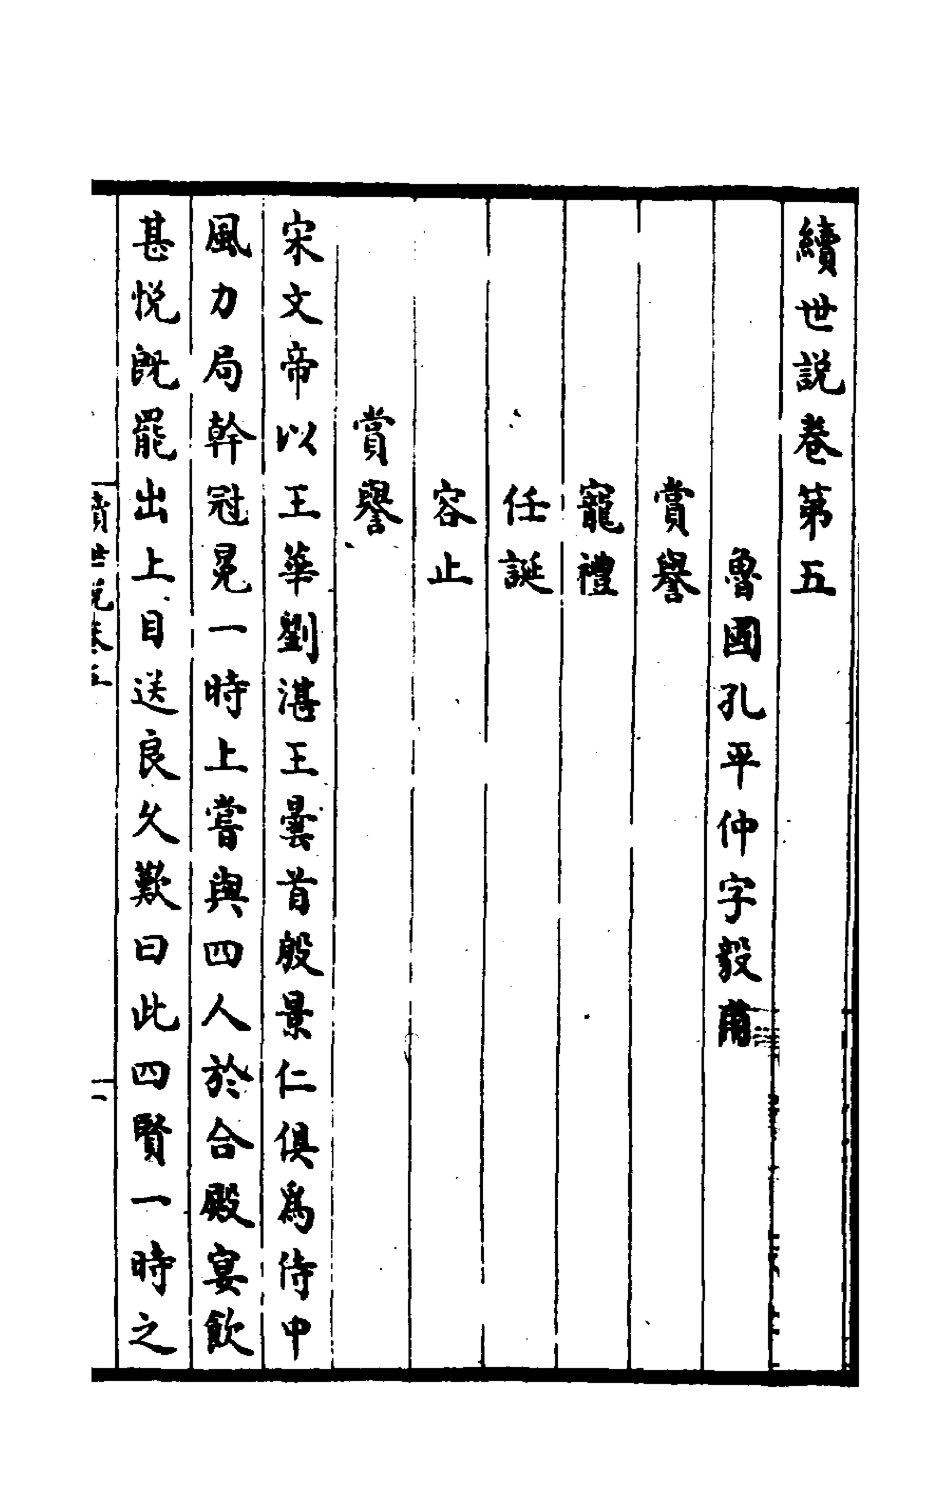 續世説卷第五
魯國孔平仲字毅甫
賞譽
寵禮
任誕
容止
賞譽
宋文帝以王華劉湛王曇首殷景仁俱爲侍中
風力局幹冠冕一時上嘗與四人於合殿宴飲
甚悦既罷出上目送良久歎曰此四賢一時之
續世説卷五
一